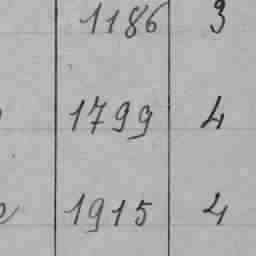 1186 3
1799 4
1915 4